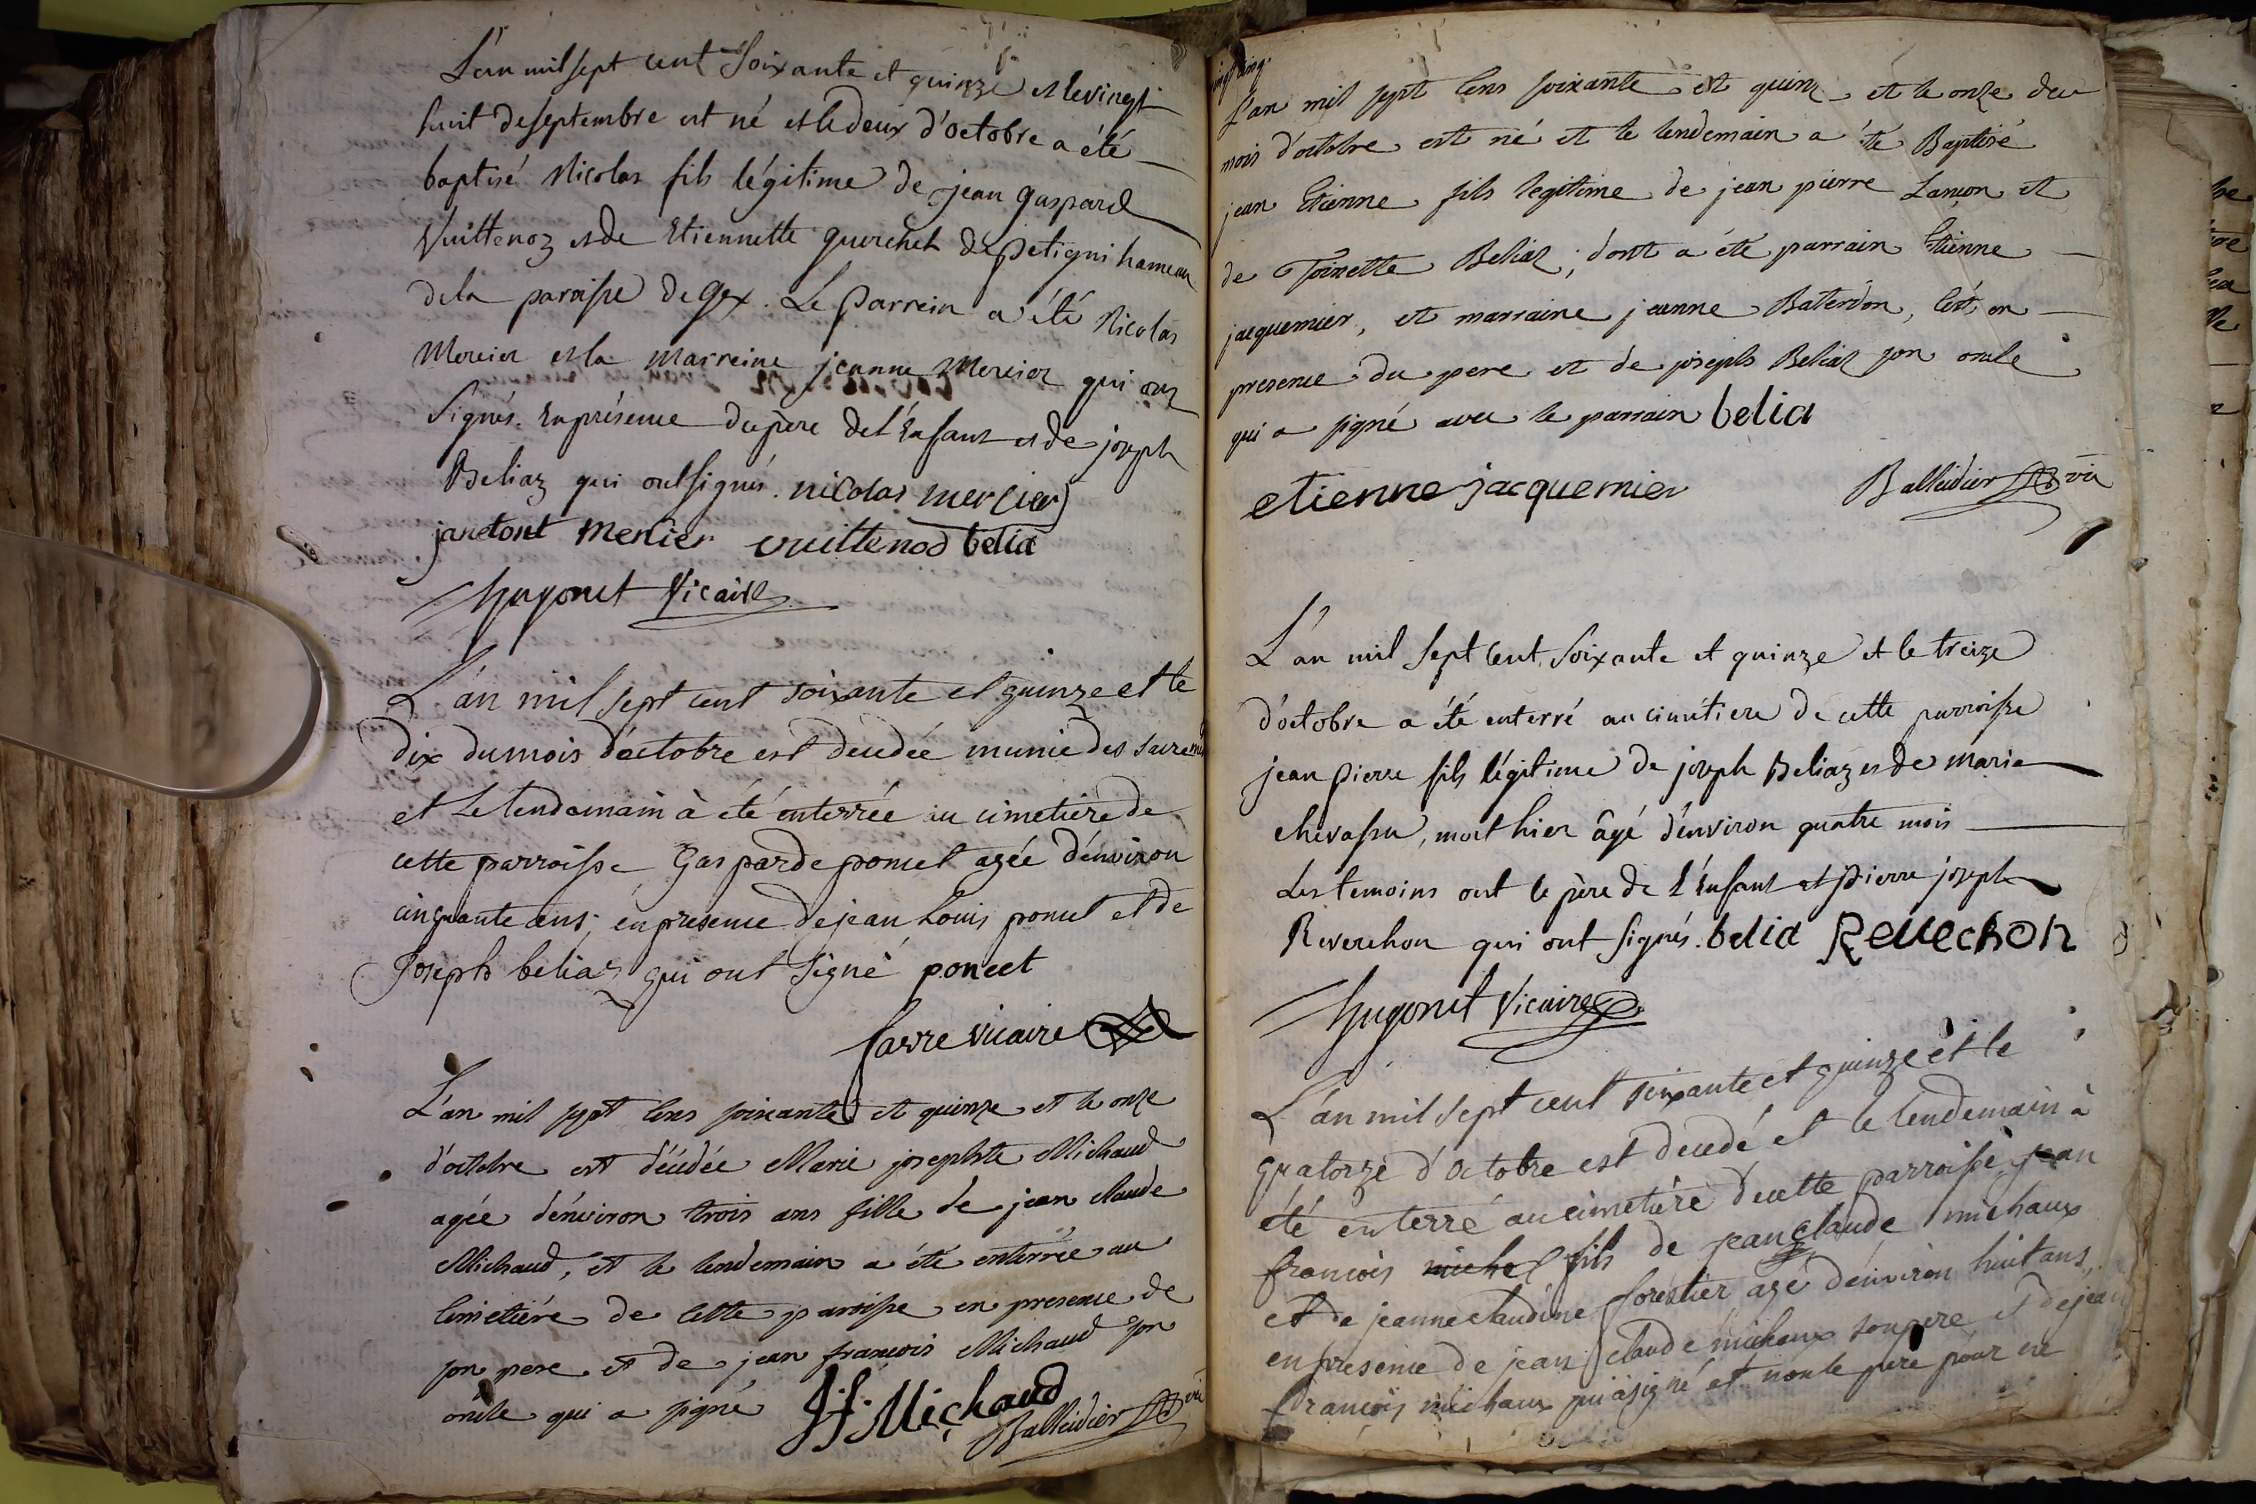 L'an mil sept cent Soixante et quinze et le vingt
huit de septembre est né et le deux d'octobre a été
baptisé Nicolas fils légitime de jean gaspard
Vuittenoz et de Etiennette querchet de petigni hameau
de la paroisse de Gex. Le Parrein a été Nicolas
Mercier et la marreine jeanne Mercier qui ont
signés. En présence du père de l'Enfant et de joseph
Beliaz qui ont signés. nicolas mercier
janetont Mercier vuittenod belia
Hugonet Vicaire
L'an mil sept cent soixante et quinze et le
dix du mois d'octobre est decedée munie des
et Le lendemain à été enterrée au cimetière de
cette parroisse Gasparde poncet agée d'environ
cinquante ans; en presence de jean Louis poncet et de
Joseph beliaz qui ont signé poncet
farre vicaire
L'an mil sept cens soixante et quinze et le onze
d'octobre est décédée Marie josephte Michaud
agée d'environ trois ans fille de jean claude
Michaud, et le lendemain a été enterrée au
cimetiére de cette paroisse en presence de
son pere et de jean francois Michaud son
oncle qui a signé J.f. Michaud
Balleidier vic
vingt cinq.
L'an mil sept cens soixante et quinz et le onze du
mois d'octobre est né et le lendemain a été Baptisé
jean Etienne fils legitime de jean pierre Lançon et
de Toinette Beliaz; dont a été parrain Etienne
jacquemier, et marraine jeanne Baterdon, c'est en
presence du pere et de joseph Beliaz son oncle
qui a signé avec le parrain belia
etienne jacquemier Balleidier vic
L'an mil sept cent Soixante et quinze et le treize
d'octobre a été enterré au cimétiere de cette parroisse
jean Pierre fils légitime de joseph Beliaz et de Marie
chevassu, mort hier âgé d'environ quatre mois
Les temoins ont le père de l'Enfant et Pierre joseph
Reverchon qui ont signés. belia Revechon
Hugonet Vicaire
L'an mil sept cent soixante et quinze et le
quatorze d'octobre est decedé et le lendemain à
été enterré au cimetiére de cette parroisse jean
francois michel fils de jean claude michaux
et de jeanne claudine forestier agé d'environ huit ans,
en presence de jean claude michaux son pere et de jean
francois michaux qui a signé et non le pere pour ne